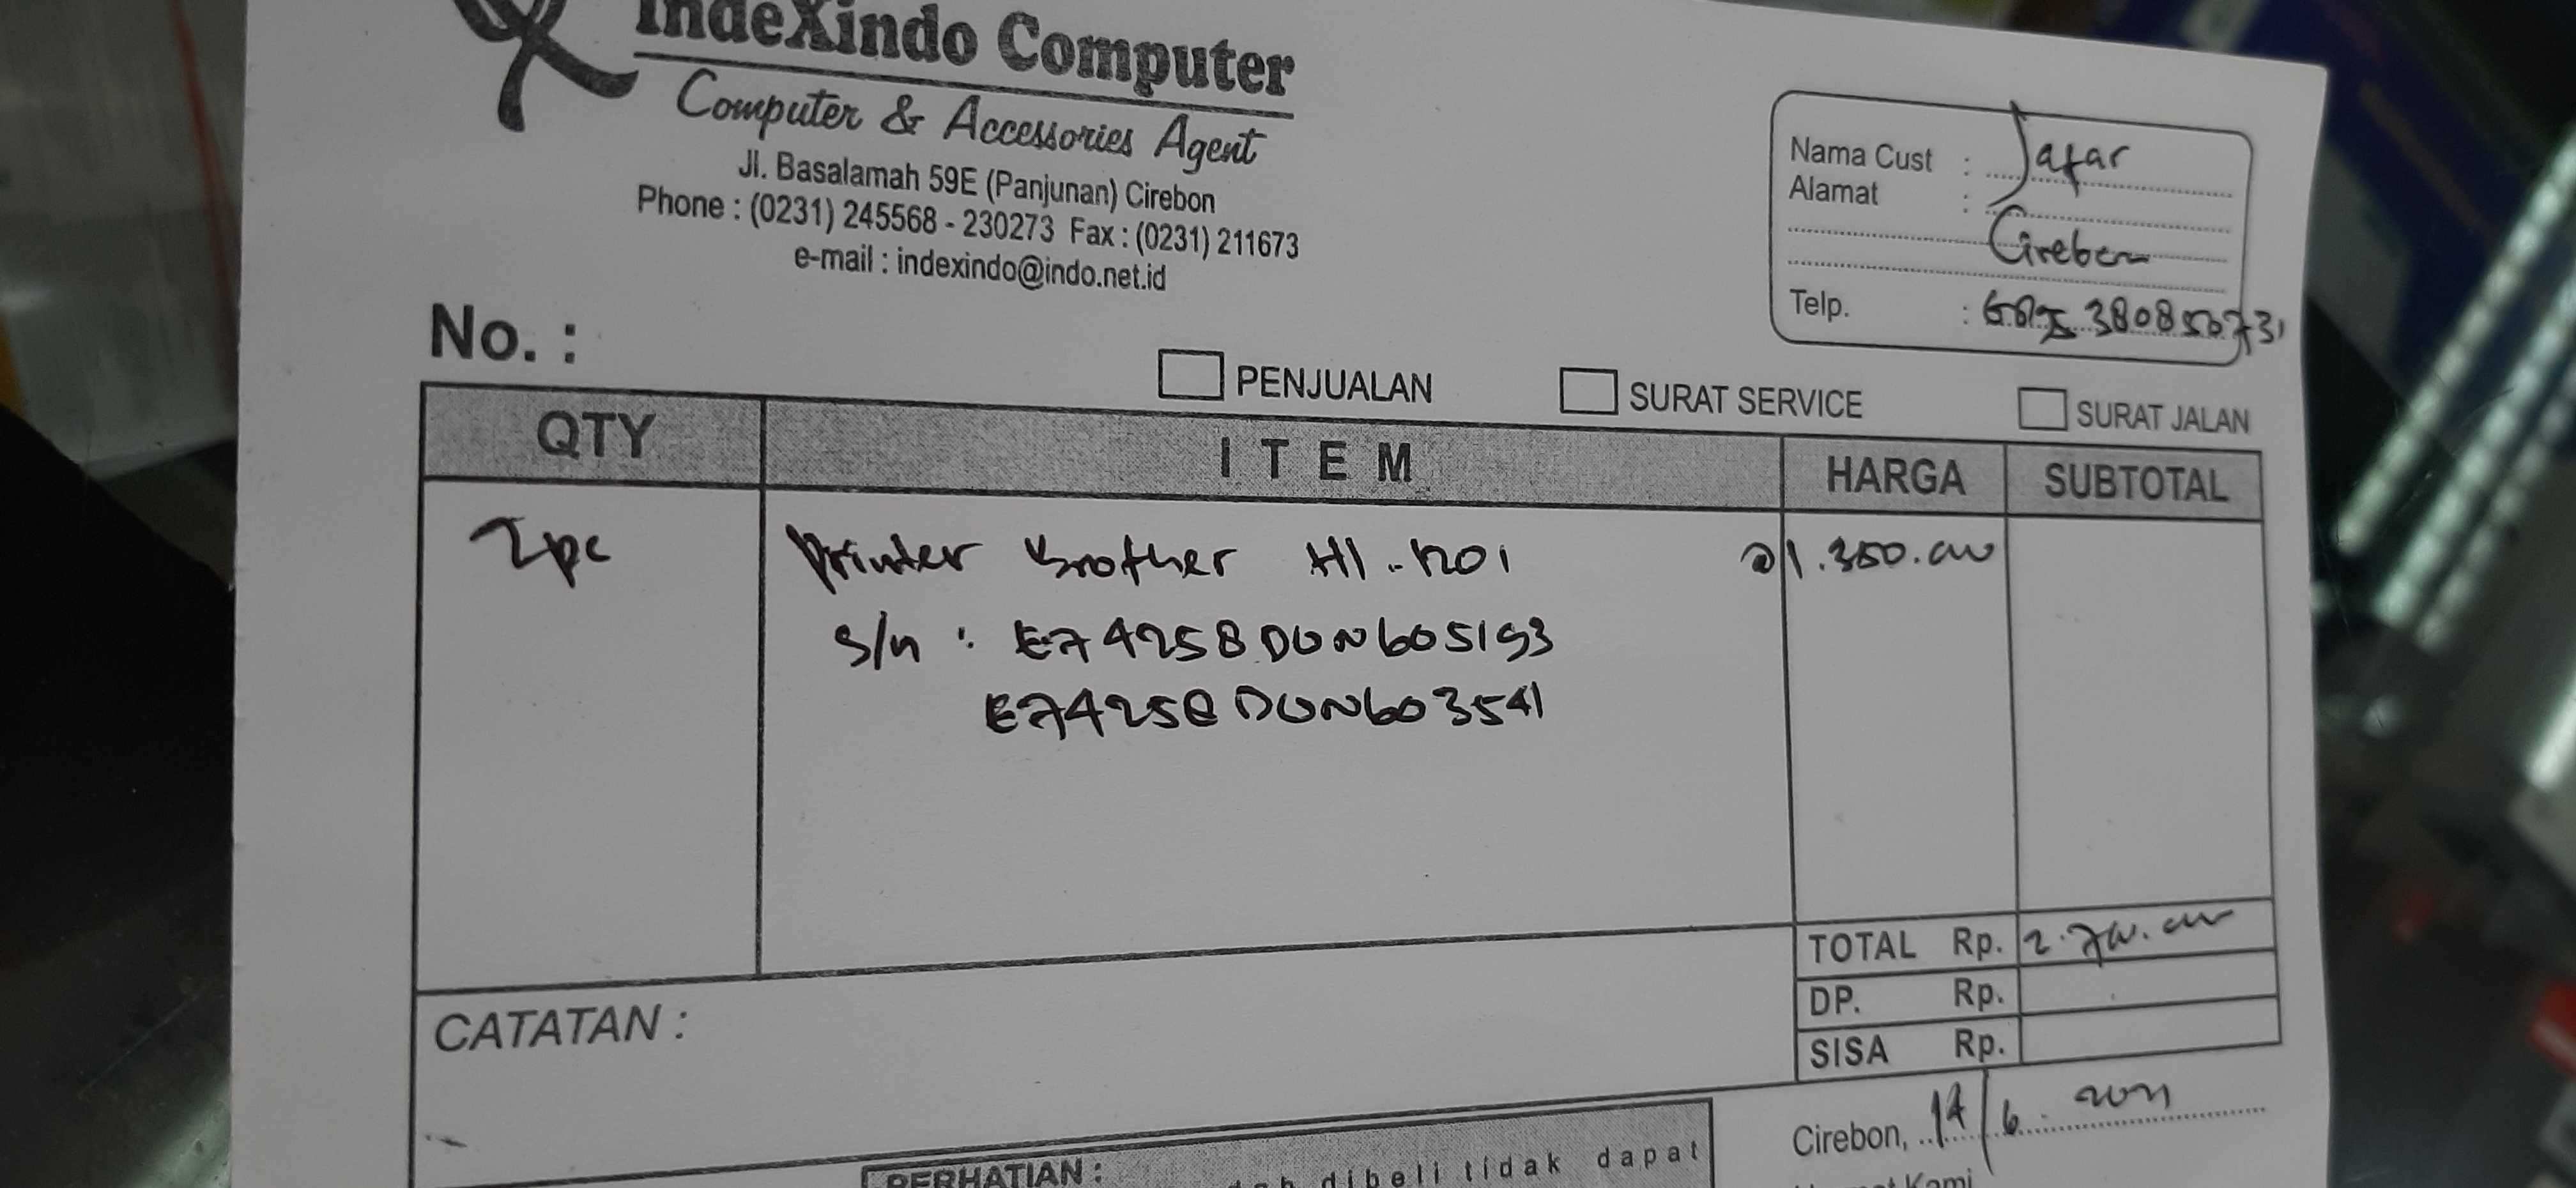 IndeXindo Computer
Computer & Accessories Agent
Jl. Basalamah 59E (Panjunan) Cirebon
Phone : (0231) 245568 - 230273 Fax : (0231) 211673
e-mail : indexindo@indo.net.id
Nama Cust : Jafar
Alamat :
Cirebon
Telp. :
No. :
PENJUALAN SURAT SERVICE SURAT JALAN
QTY ITEM HARGA SUBTOTAL
2pc Printer Brother Hl-1201 @ 1.350.000
S/n : E74258D0N605193
E74258D0N603541
TOTAL Rp. 2.700.000
DP. Rp.
SISA Rp.
CATATAN :
Cirebon, 14/6.2021
PERHATIAN :
dibeli tidak dapat
Kami